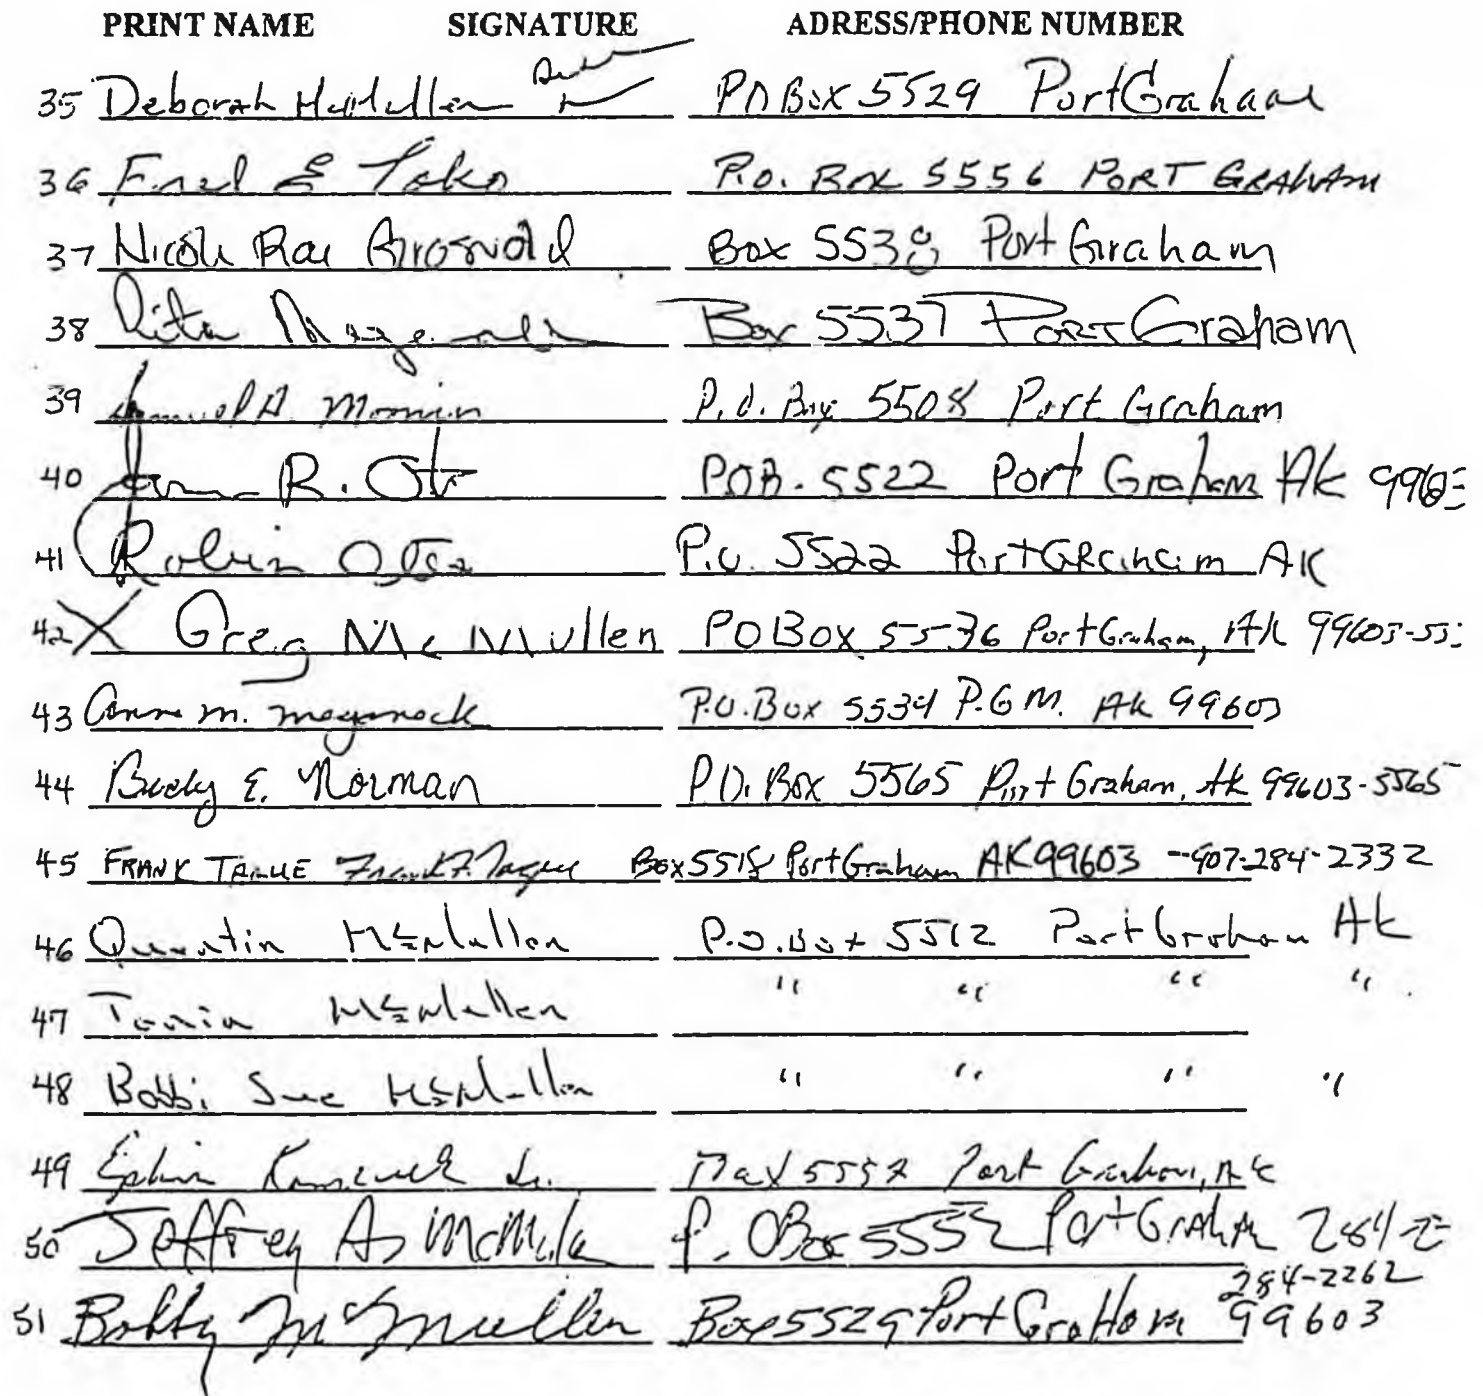 PRINT NAME SIGNATURE ADRESS/PHONE NUMBER
35 Deborah McMullen PO Box 5529 Port Graham
36 Fred E P.O. Box 5556 PORT GRAHAM
37 Nicole Rae Griswold Box 5538 Port Graham
38 Rita Box 5537 Port Graham
39 Samuel A. Moonin P.O. Box 5508 Port Graham
40 R. Ot POB. 5522 Port Graham AK
41 Robin P.O. 5522 Port GRaham AK
42 X Greg McMullen PO Box 5536 Port Graham, AK 99603-55
43 Anna m. meganack P.O. Box 5534 P.G M. AK 99603
44 E. Norman P.O. Box 5565 Port Graham, AK 99603-5565
45 FRANK TAGUE Frank F. Tague Box 5518 Port Graham AK 99603 -907-284-2332
46 Quentin McMullen P.O. Box 5512 Port Graham AK
47 Tania McMullen " " " "
48 Bobbi Sue McMullen " " " "
49 Jr. Port Graham, AK
50 Jeffrey A, P. O Box 5552 Port Graham 284-2
284-2262
51 Bobby McMullen Box 5529 Port GraHam 99603